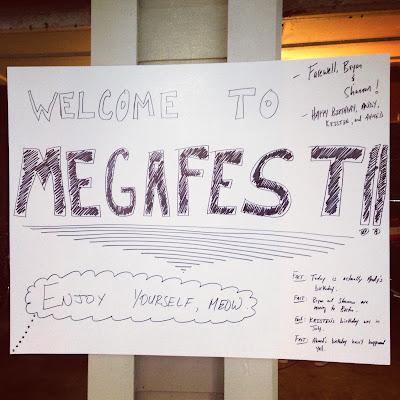 WELCOME TO
- Farewell, Bryan
&
Shannon!
- HAPPY BIRTHDAY, ANDY,
KRISTEN, and AHMED
MEGAFEST!!
ENJOY YOURSELF, MEOW.
FACT: Today is actually Andy's
birthday.
FACT: Bryan and Shannon are
moving to Boston.
FACT: KRISTEN's birthday was in
July.
FACT: Ahmed's birthday hasn't happened
yet.